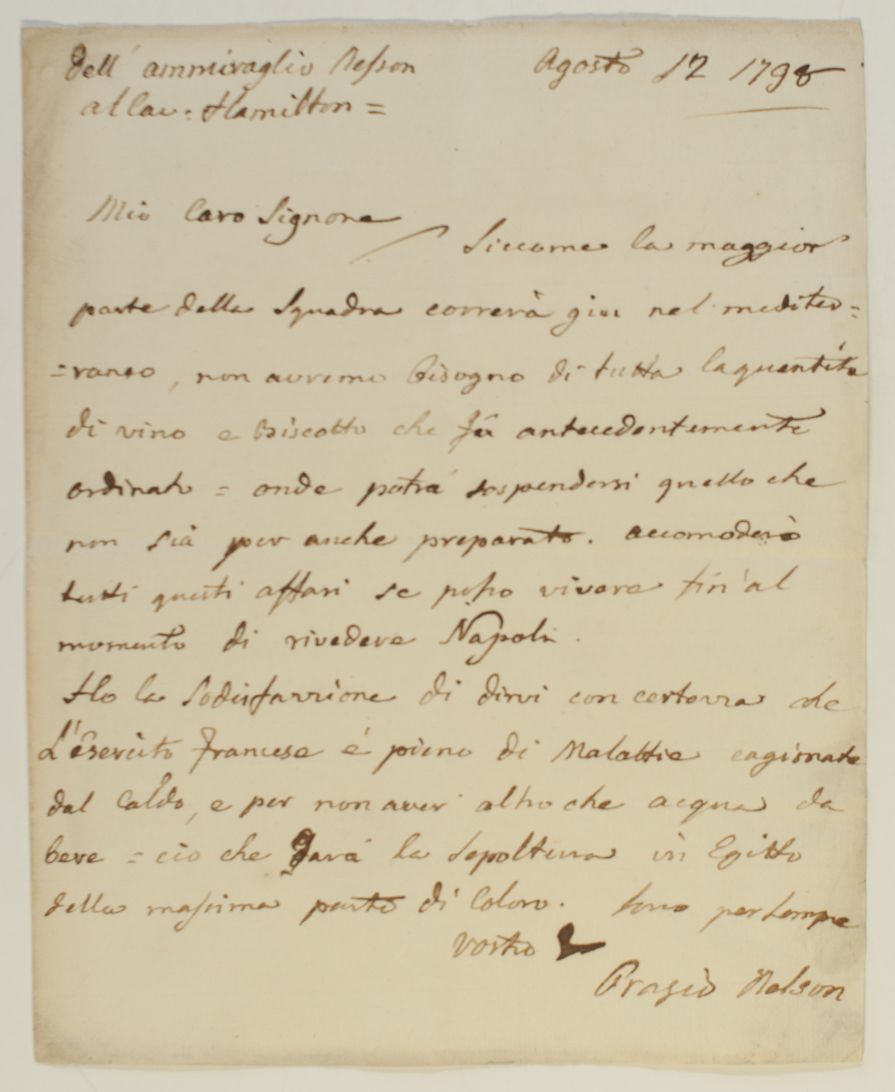 dell' ammiraglio Nelson Agosto 12 1798
al Cav: Hamilton =
Mio Caro Signore
Siccome la maggior
parte della Squadra correrà giu nel mediter=
=raneo, non avremo bisogno di tutta la quantità
di vino e Biscotto che fù antecedentemente
ordinato = onde potrà sospendersi quello che
non sià per anche preparato. accomoderò
tutti questi affari se posso vivere fin' al
momento di rivedere Napoli.
Ho la Sodisfazzione di dirvi con certezza che
L'Esercito francese é pieno di Malattie cagionate
dal Caldo, e per non aver altro che acqua da
bere = ciò che darà la Sepoltura in Egitto
della massima parte di Coloro. Sono per sempre
Vostro
Orazio Nelson